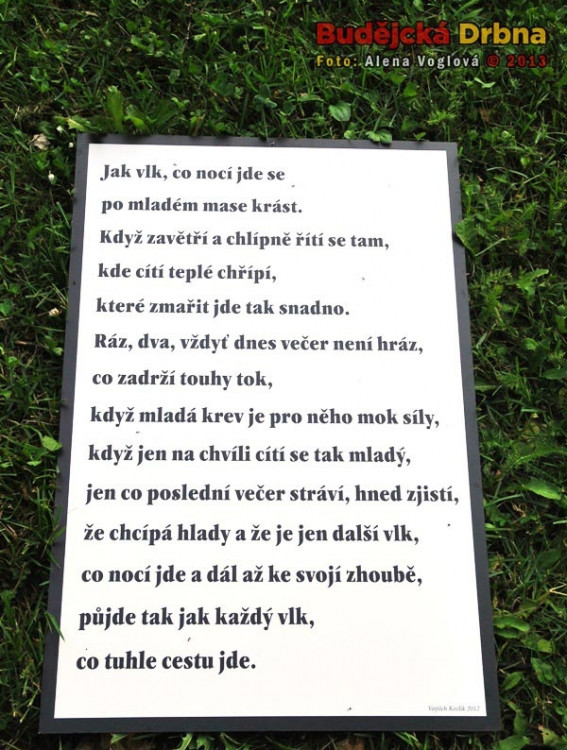 Budějcká Drbna
Foto: Alena Voglová © 2013
Jak vlk, co nocí jde se
po mladém mase krást.
Když zavětří a chlípně řítí se tam,
kde cítí teplé chřípí,
které zmařit jde tak snadno.
Ráz, dva, vždyť dnes večer není hráz,
co zadrží touhy tok,
když mladá krev je pro něho mok síly,
když jen na chvíli cítí se tak mladý,
jen co poslední večer stráví, hned zjistí,
že chcípá hlady a že je jen další vlk,
co nocí jde a dál až ke svojí zhoubě,
půjde tak jak každý vlk,
co tuhle cestu jde.
2012